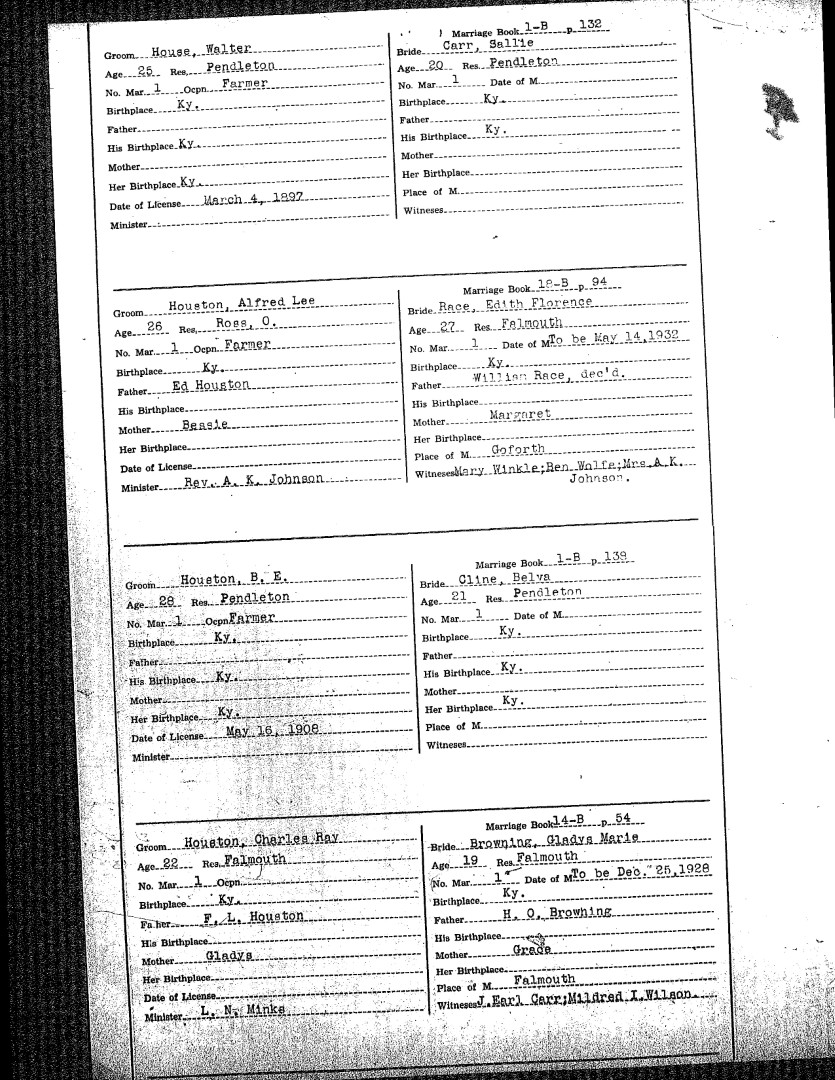 Marriage Book 1-B p. 132
Groom House, Walter
Age 25 Res. Pendleton
No. Mar. 1 Ocpn. Farmer
Birthplace Ky.
Father
His Birthplace Ky.
Mother
Her Birthplace Ky.
Date of License March 4, 1897
Minister
Bride Carr, Sallie
Age 20 Res. Pendleton
No. Mar. 1 Date of M.
Birthplace Ky.
Father
His Birthplace Ky.
Mother
Her Birthplace
Place of M.
Witneses
Marriage Book 18-B p. 94
Groom Houston, Alfred Lee
Age 26 Res. Ross, O.
No. Mar. 1 Ocpn. Farmer
Birthplace Ky.
Father Ed Houston
His Birthplace
Mother Bessie
Her Birthplace
Date of License
Minister Rev. A. K. Johnson
Bride Race, Edith Florence
Age 27 Res. Falmouth
No. Mar. 1 Date of M. To be May 14,1932
Birthplace Ky.
Father William Race, dec'd.
His Birthplace
Mother Margaret
Her Birthplace
Place of M. Goforth
Witneses Mary Winkle;Ben Wolfe;Mrs.A.K.
Johnson.
Marriage Book 1-B p. 139
Groom Houston, B. E.
Age 28 Res. Pendleton
No. Mar. 1 Ocpn. Farmer
Birthplace Ky.
Father
His Birthplace Ky.
Mother
Her Birthplace Ky.
Date of License May 16, 1908
Minister
Bride Cline, Belva
Age 21 Res. Pendleton
No. Mar. 1 Date of M.
Birthplace Ky.
Father
His Birthplace Ky.
Mother
Her Birthplace Ky.
Place of M.
Witneses
Marriage Book 14-B p. 54
Groom Houston, Charles Ray
Age 22 Res. Falmouth
No. Mar. 1 Ocpn.
Birthplace Ky.
Father F. L. Houston
His Birthplace
Mother Gladys
Her Birthplace
Date of License
Minister L. N. Minks
Bride Browning, Gladys Marie
Age 19 Res. Falmouth
No. Mar. 1 Date of M. To be Dec. 25,1928
Birthplace Ky.
Father H. O. Browning
His Birthplace
Mother Grace
Her Birthplace
Place of M. Falmouth
Witneses J. Earl Carr;Mildred I.Wilson.